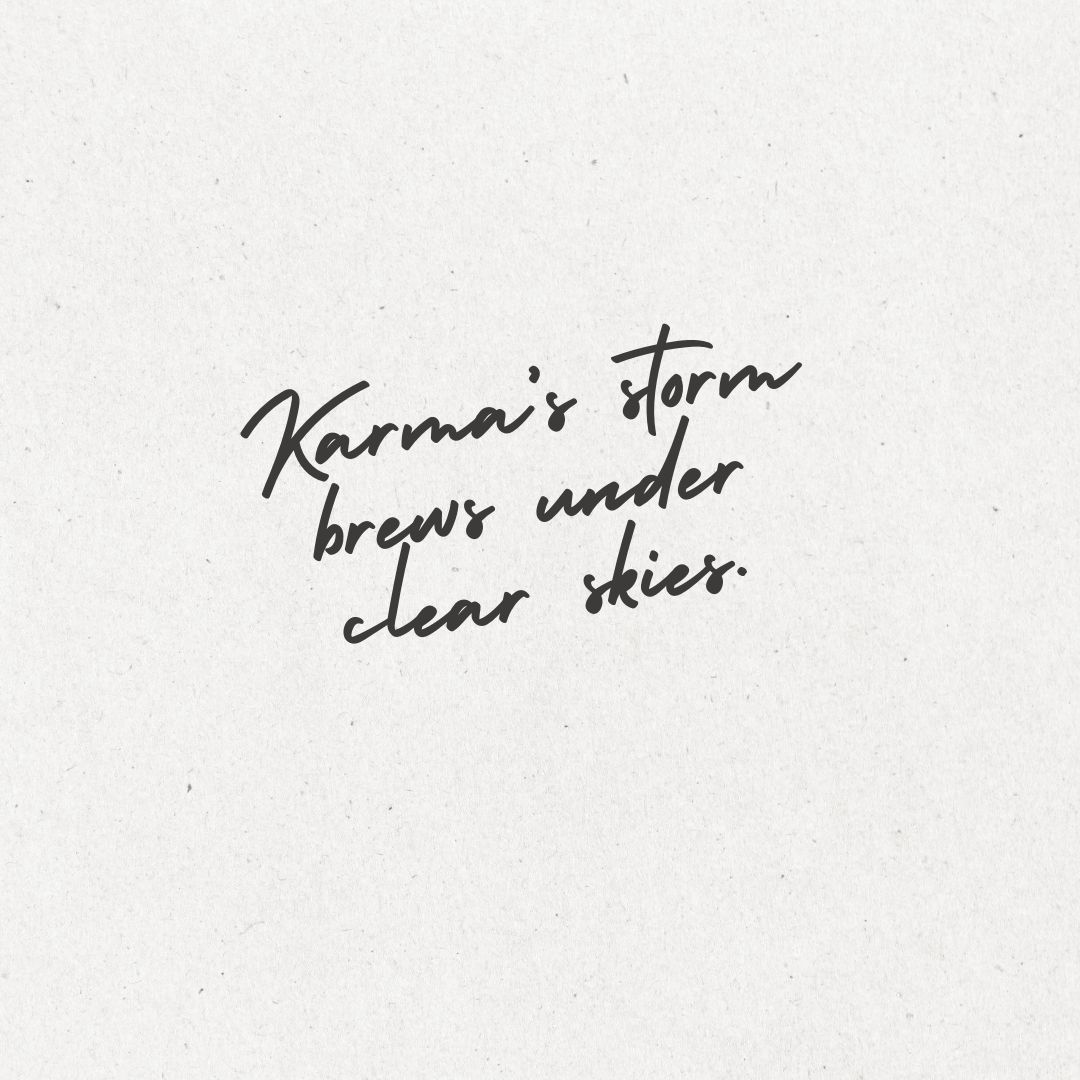 Karma's storm
brews under
clear skies.